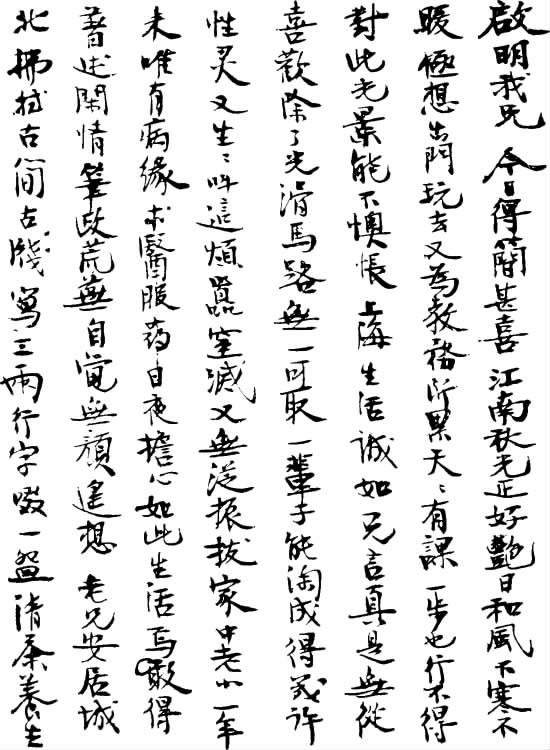 啟明我兄 今日得簡甚喜 江南秋光正好艷日和風不寒不
暖極想出門玩去又為教務所累天天有課一步也行不得
對此光景能不懊悵 上海生活誠如 兄言真是無從
喜歡除了光滑馬路無一可取一輩子能淘成得幾許
性灵又生生叫這煩囂窒滅又無從振拔家中老小一年
来唯有病緣求醫服葯日夜擔心如此生活焉敢得
著述閑情筆政荒蕪自覺無顏遙想 老兄安居城
北拂拭古簡古牋寫三兩行字啜一盌清茶養生